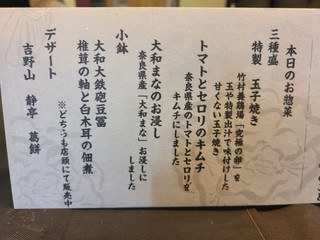 本日のお惣菜
三種盛
特製 玉子焼き
竹村養鶏場「究極の卵」を
玉や特製出汁で味付けした
甘くない玉子焼き
トマトとセロリのキムチ
奈良県産のトマトとセロリを
キムチにしました
大和まなのお浸し
奈良県産「大和まな」お浸しに
しました
小鉢
大和大鉄砲豆冨
椎茸の軸と白木耳の佃煮
※どちらも店頭にて販売中
デザート
吉野山 静亭 葛餅